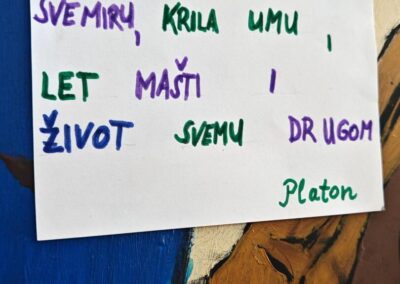 SVEMIRU, KRILA UMU,
LET MAŠTI I
ŽIVOT SVEMU DRUGOM
Platon